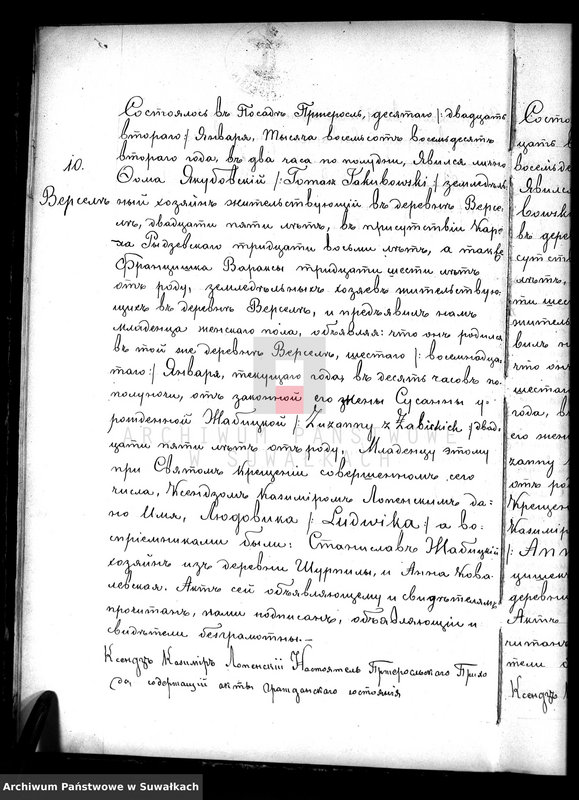 10.
Верселе
Состоялось въ Посадѣ Пржеросль, десятаго /: двадцать
втораго :/ Января, тысяча восемьсотъ восемьдесятъ
втораго года, въ два часа по полудни, явился лично
Ѳома Якубовскій /: Tomasz Jakubowski :/ земледѣль
ный хозяинъ жительствующій въ деревнѣ Версе-
лѣ, двадцати пяти лѣтъ, въ присутствіи Каро-
ля Рыдзевскаго тридцати восьми лѣтъ, а также
Францишка Вараксы тридцати шести лѣтъ
отъ роду, земледѣльныхъ хозяевъ жительствую-
щихъ въ деревнѣ Верселѣ, и предъявилъ намъ
младенца женскаго пола, объявляя: что онъ родился
въ той же деревнѣ Верселѣ, шестаго /: восемнадца-
таго :/ Января, текущаго года, въ десять часовъ по
полуночи, отъ законной его жены Сусанны у-
рожденной Жабицкой /: Zuzanny z Żabickich :/ двад-
цати пяти лѣтъ отъ роду, Младенцу этому
при Святомъ Крещеніи совершенномъ сего
числа, Ксендзомъ Казиміромъ Лопенскимъ да-
но Имя, Людовика /: Ludwika :/ а во-
спріемниками были: Станиславъ Жабицкій
хозяинъ изъ деревни Шурпилы, и Анна Кова-
левская. Актъ сей объявляющему и свидѣтелямъ
прочитанъ, нами подписанъ, объявляющій и
свидѣтели безграмотны. —
Ксендзъ Казиміръ Лопенскій Настоятель Пржерослскаго Прихо
да содержащій акты гражданскаго состоянія
ARCHIWUM PAŃSTWOWE
W SUWAŁKACH
Archiwum Państwowe w Suwałkach